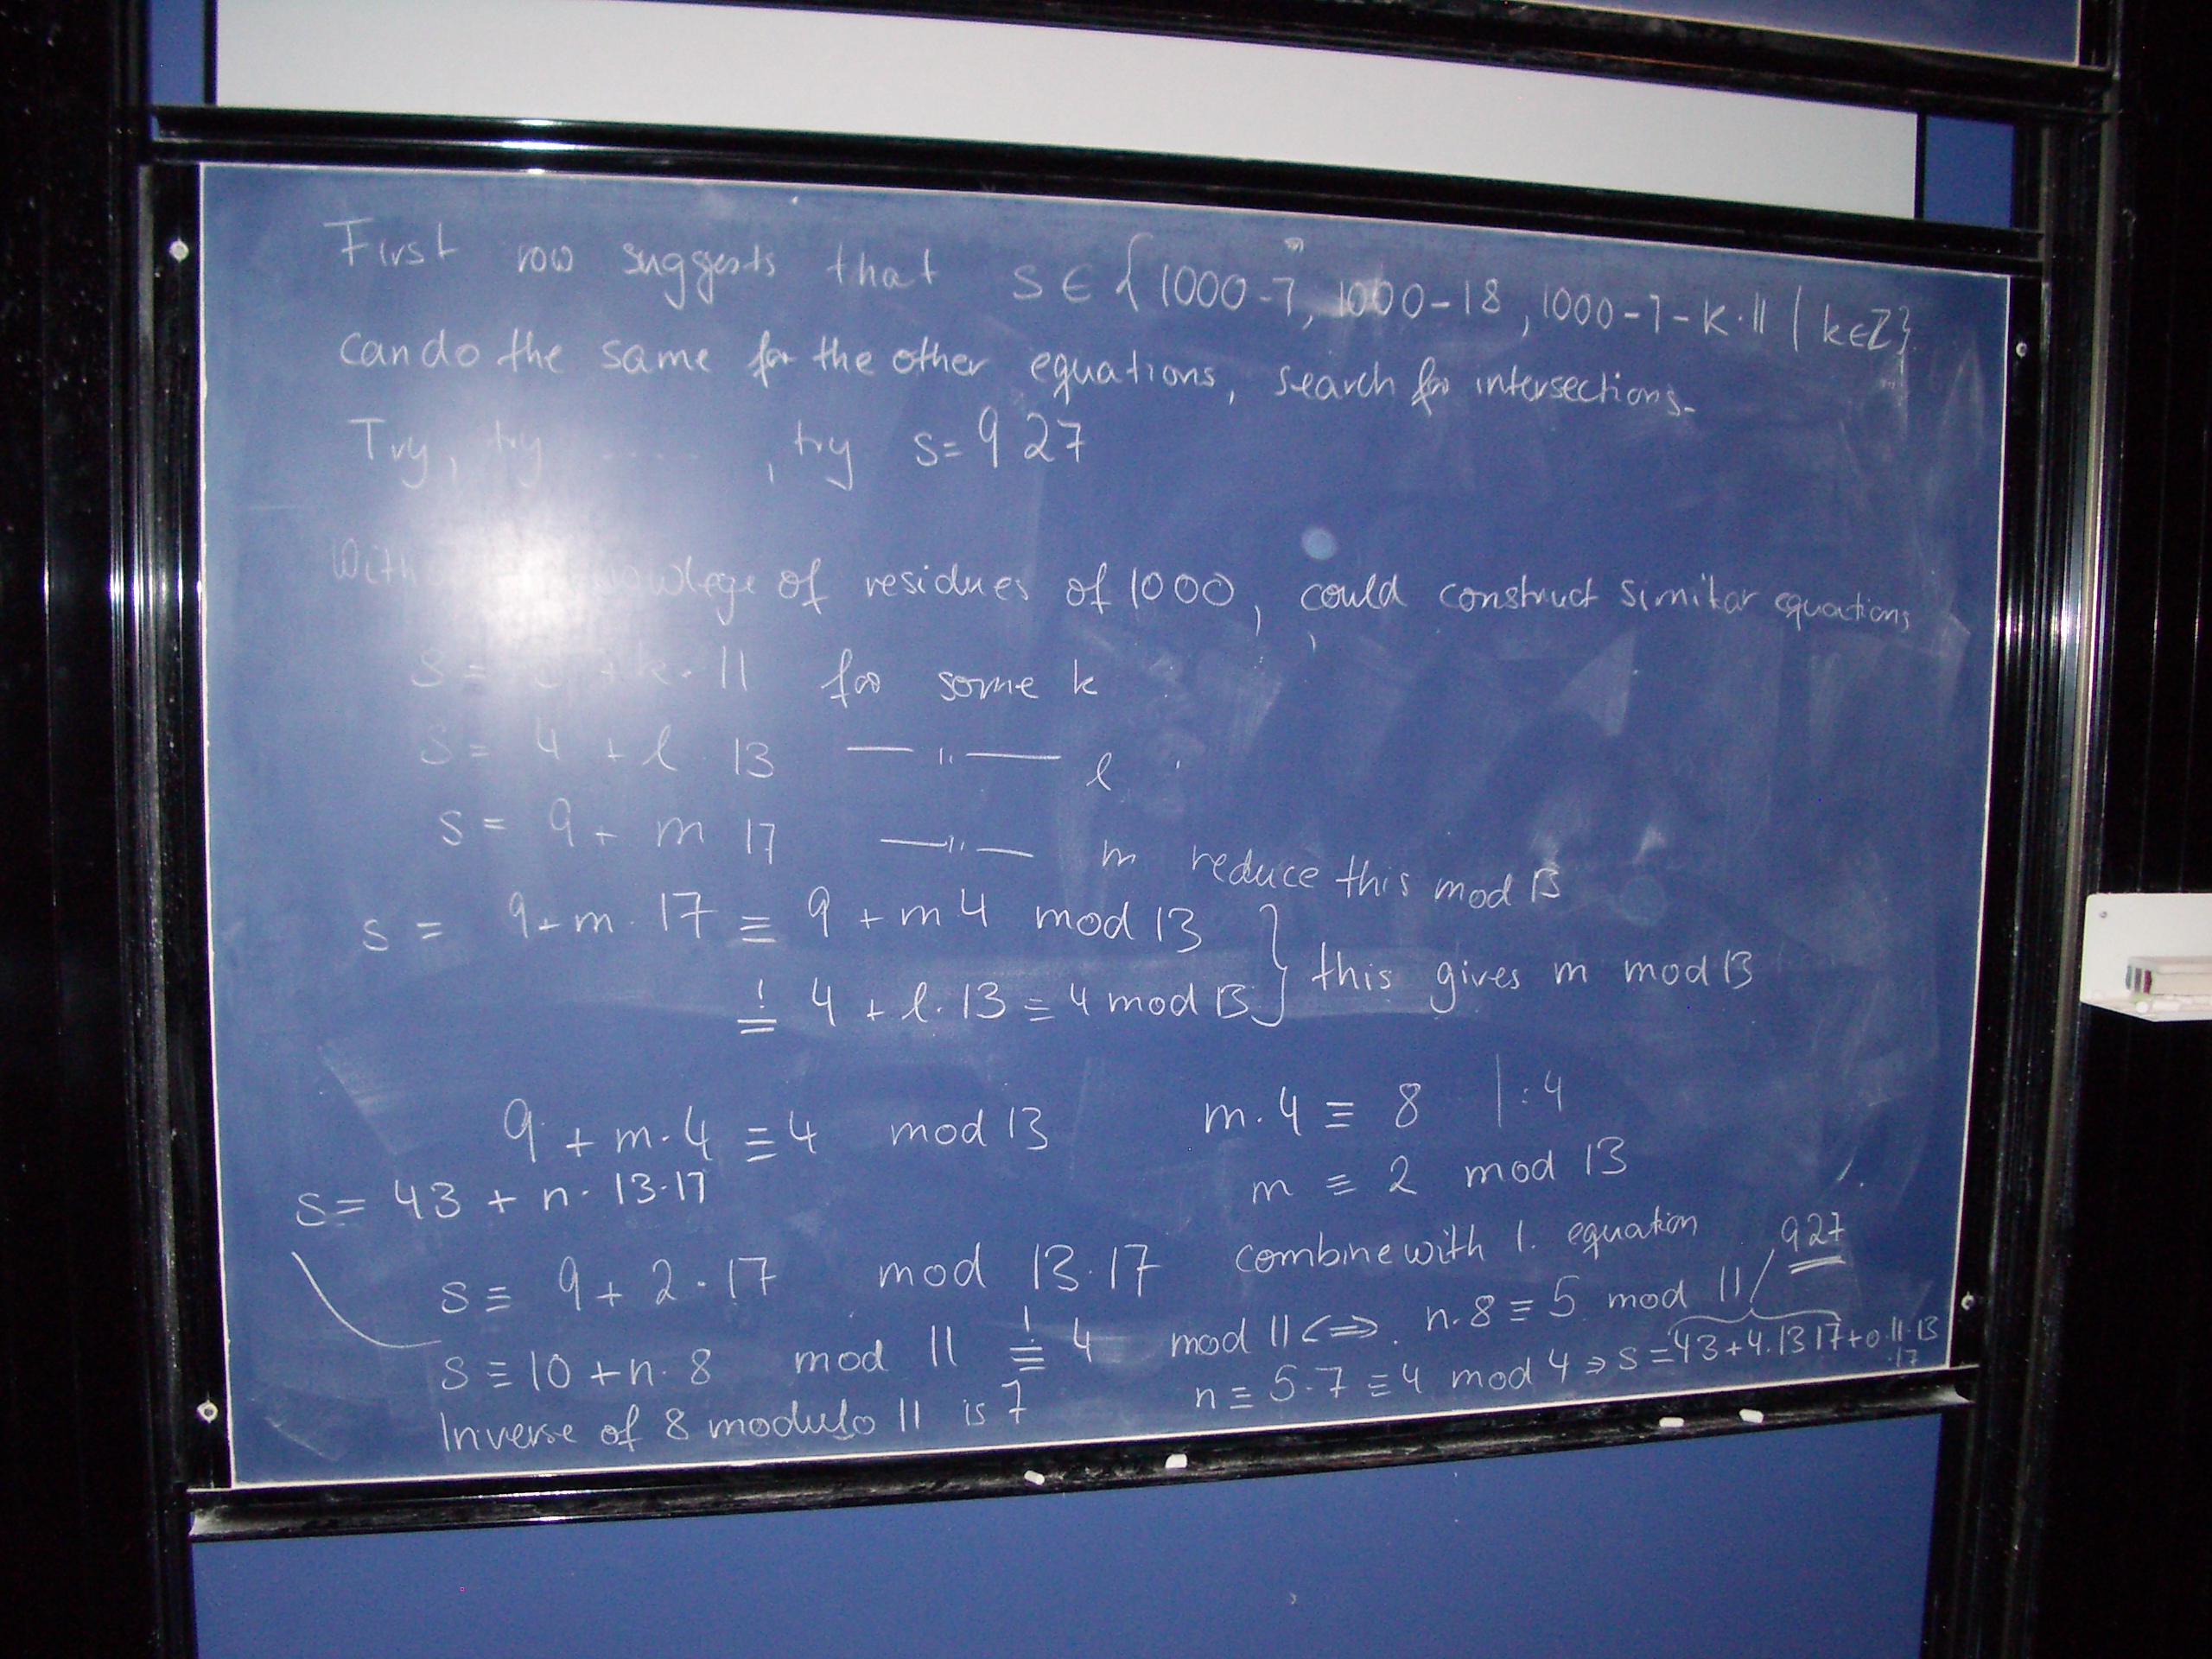 First row suggests that S ∈ {1000-7, 1000-18, 1000-7-k·11 | k∈Z}
can do the same for the other equations, search for intersections.
Try, try ....., try S=927
knowlege of residues of 1000, could construct similar equations
S = + k·11 for some k
S = 4 + l 13 —"— l
S = 9 + m 17 —"— m reduce this mod 13
S = 9+m·17 ≡ 9 + m4 mod 13
≡! 4 + l·13 ≡ 4 mod 13 } this gives m mod 13
9 + m·4 ≡ 4 mod 13 m·4 ≡ 8 | :4
S = 43 + n·13·17 m ≡ 2 mod 13
S ≡ 9 + 2·17 mod 13·17 combine with 1. equation 927
S ≡ 10 + n·8 mod 11 ≡! 4 mod 11 <=> n·8 ≡ 5 mod 11
Inverse of 8 modulo 11 is 7 n ≡ 5·7 ≡ 4 mod 4 ⇒ S = 43+4·13 17+o·11·13·17